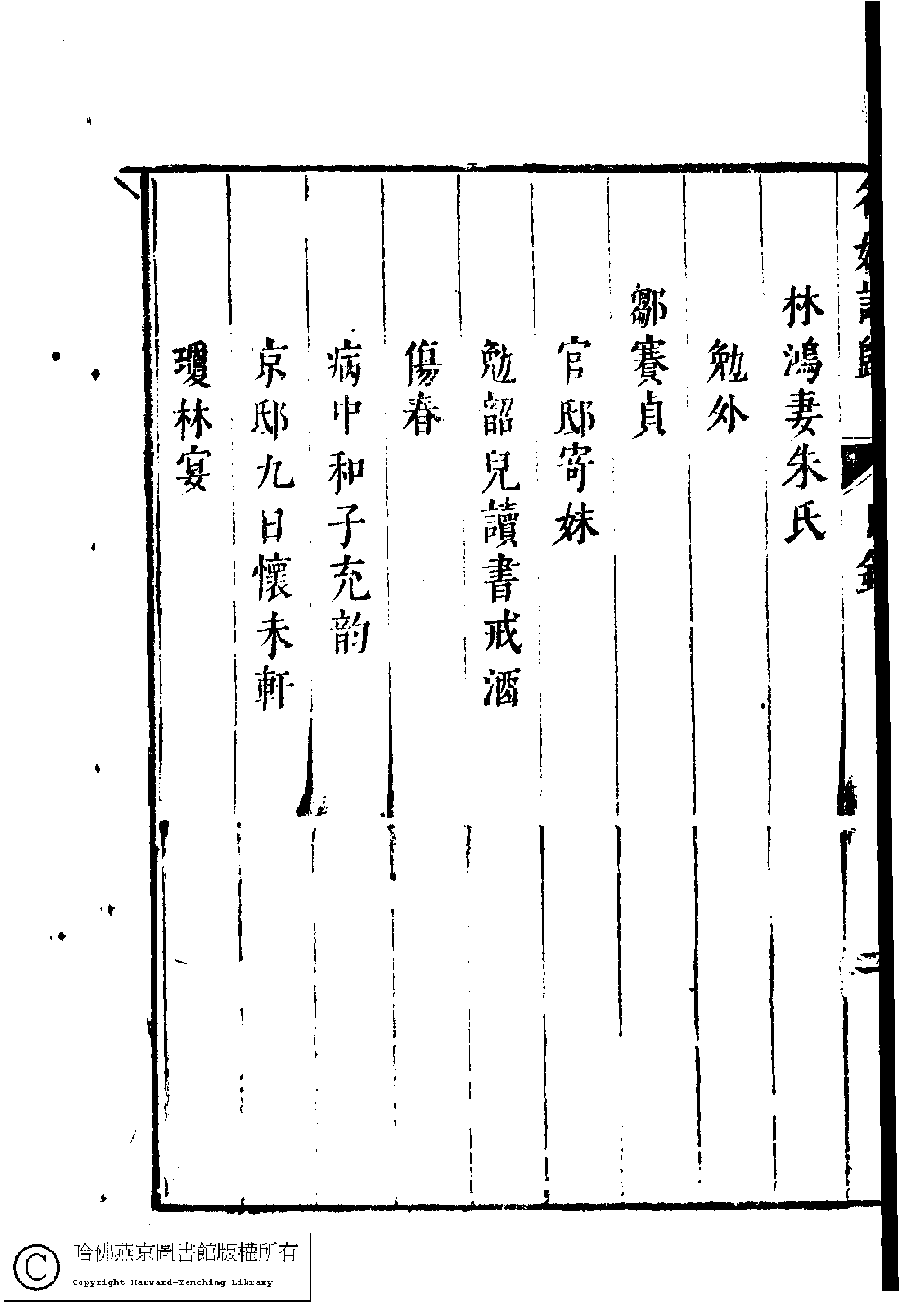 林鴻妻朱氏
勉外
鄒賽貞
官邸寄妹
勉韶兒讀書戒酒
傷春
病中和子充韵
京邸九日懷未軒
瓊林宴
二
哈佛燕京圖書館版權所有
Copyright Harvard-Yenching Library